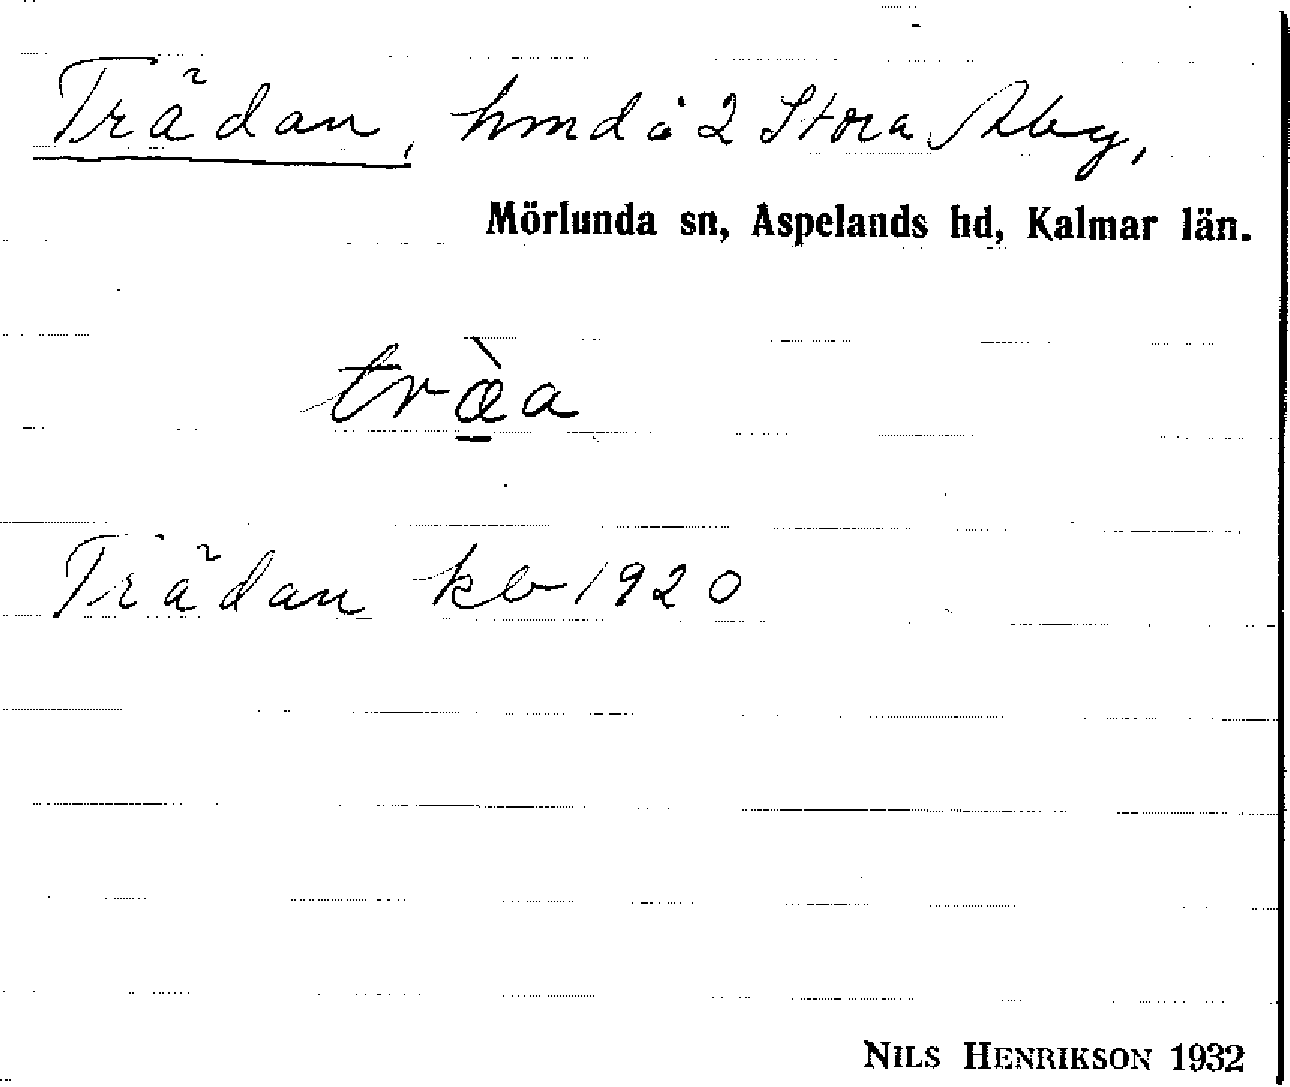 Trädan, hmd å 2 Stora Aby,
Mörlunda sn, Aspelands hd, Kalmar län.
træ̱̀a
Trädan kb 1920
NILS HENRIKSON 1932